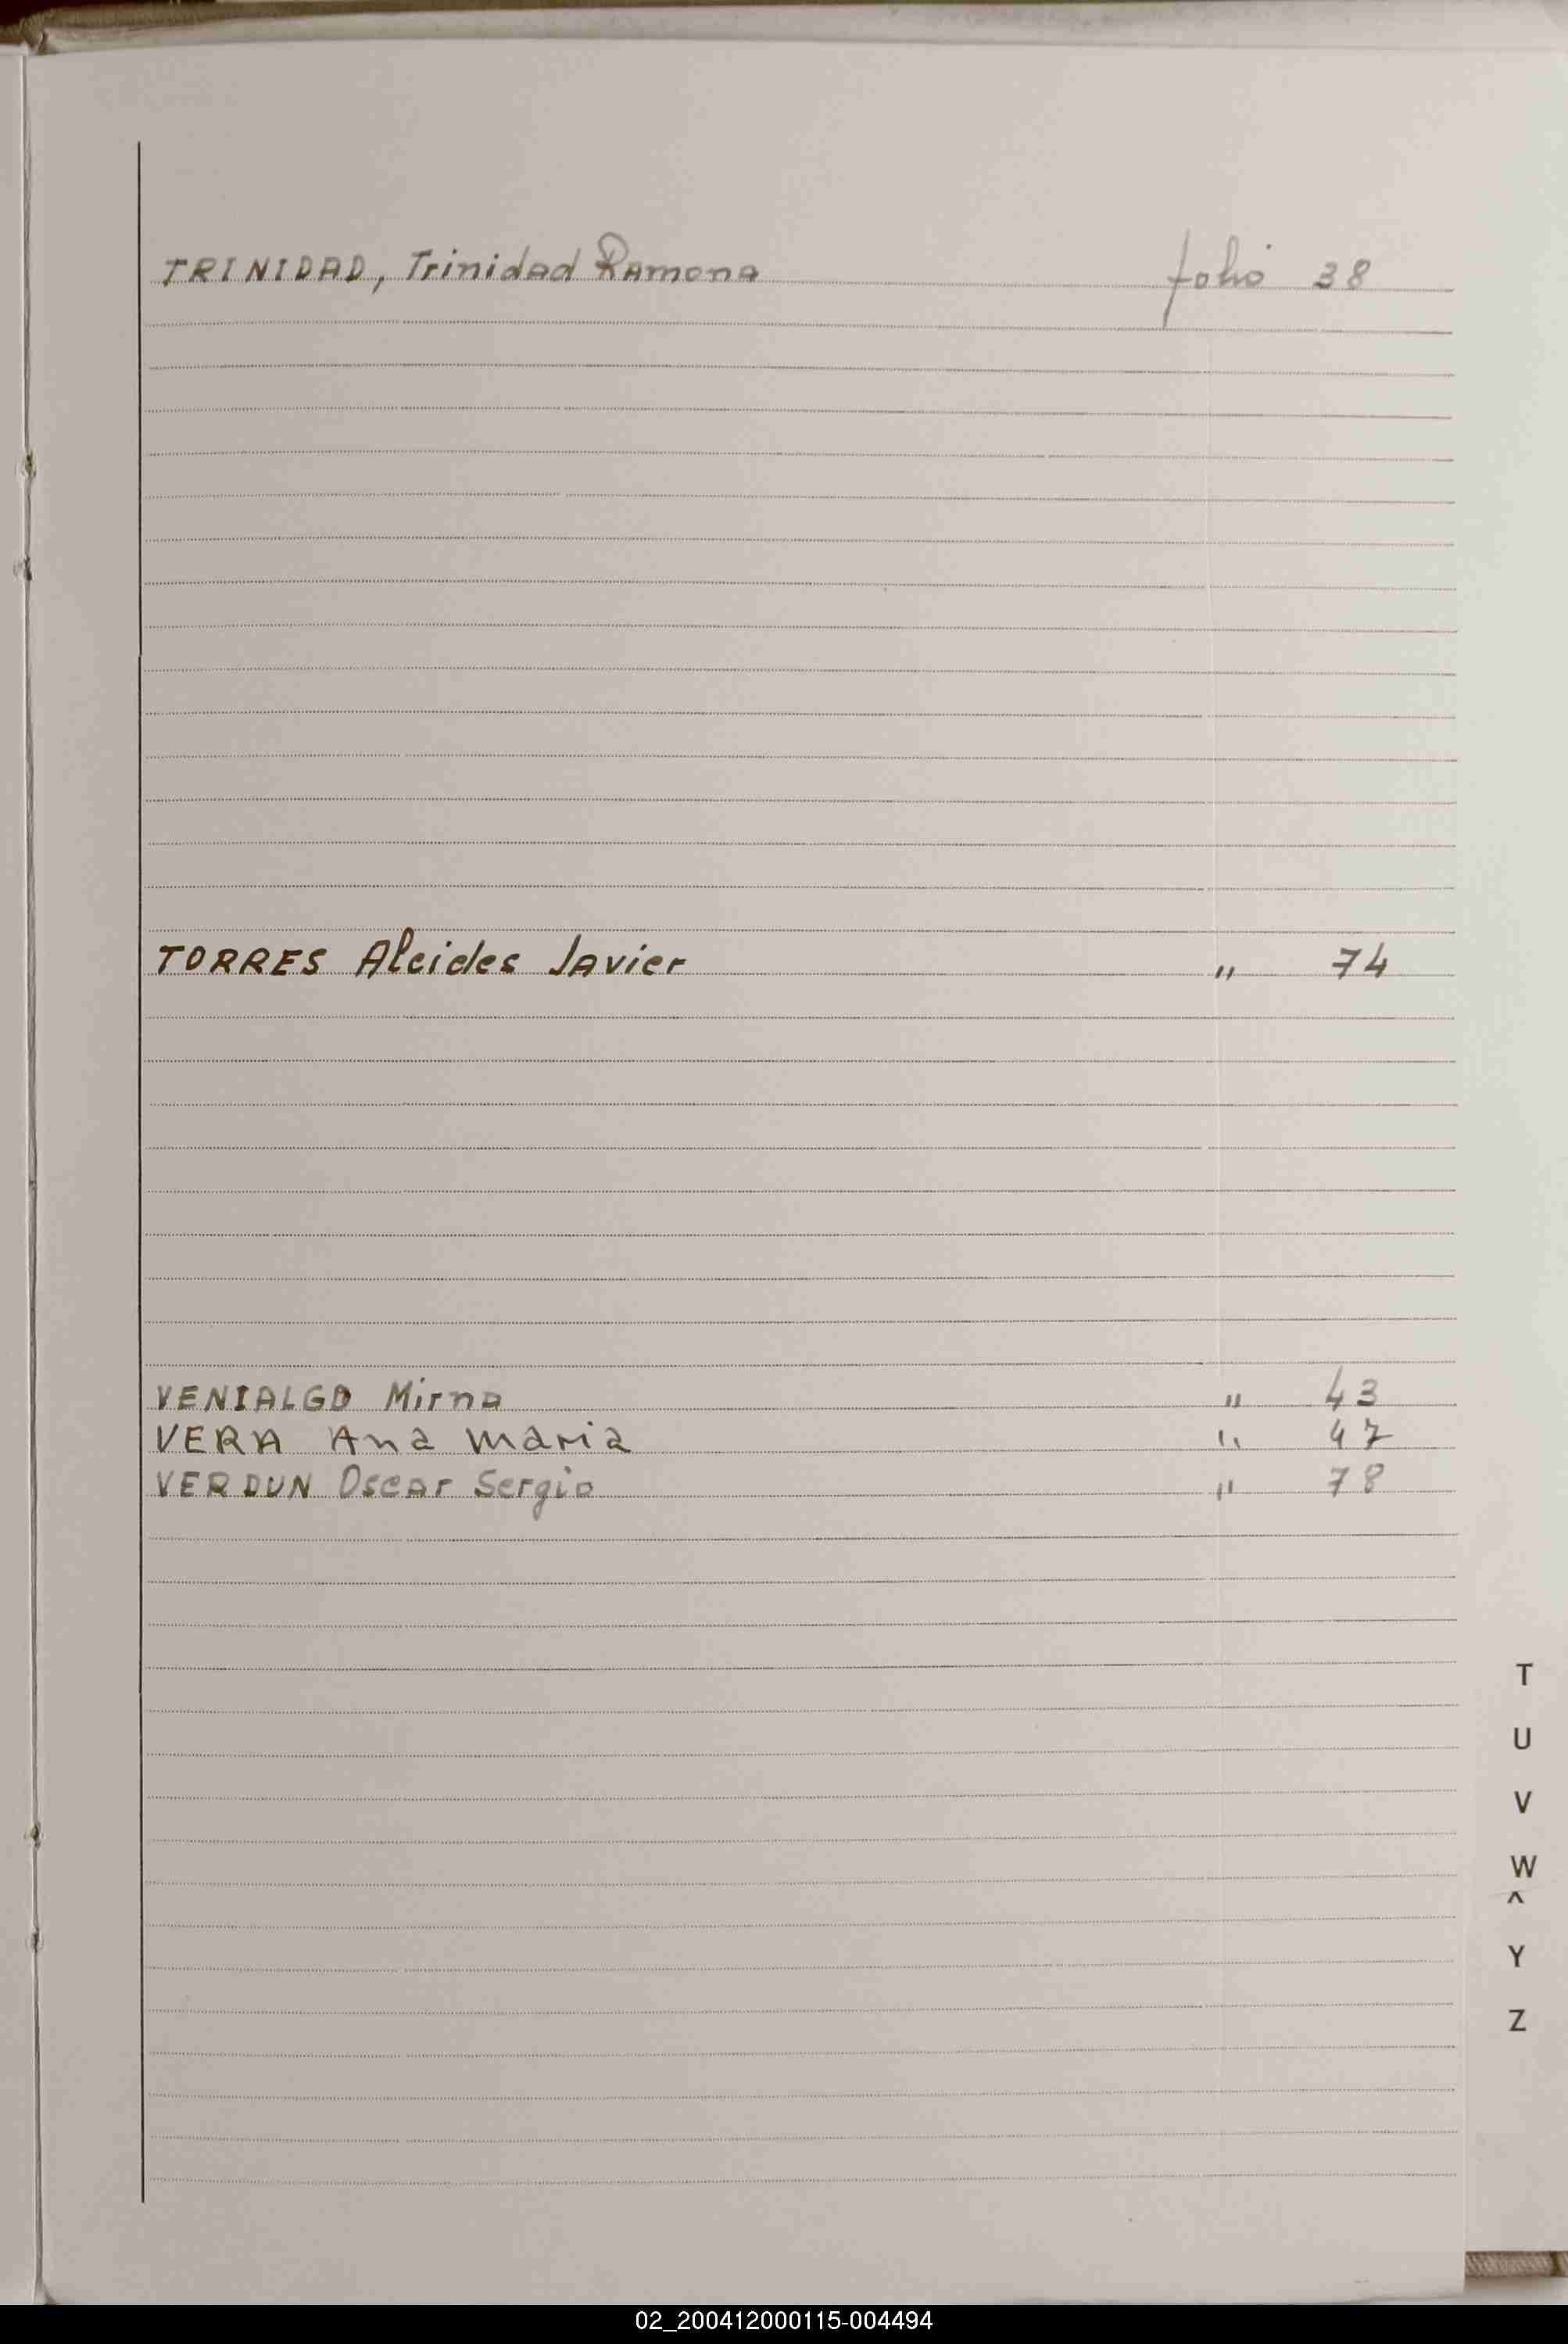 TRINIDAD, Trinidad Ramona folio 38
TORRES Alcides Javier " 74
VENIALGO Mirna " 43
VERA Ana Maria " 47
VERDUN Oscar Sergio " 78
T
U
V
W
^
Y
Z
02_200412000115-004494